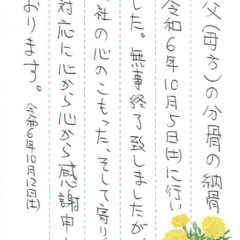 父(母方)の分骨の納骨
令和6年10月5日(土)に行い
した。無事終了致しましたが、
社の心のこもった、そして寄り
対応に心から心から感謝申
おります。
令和6年10月12日(土)